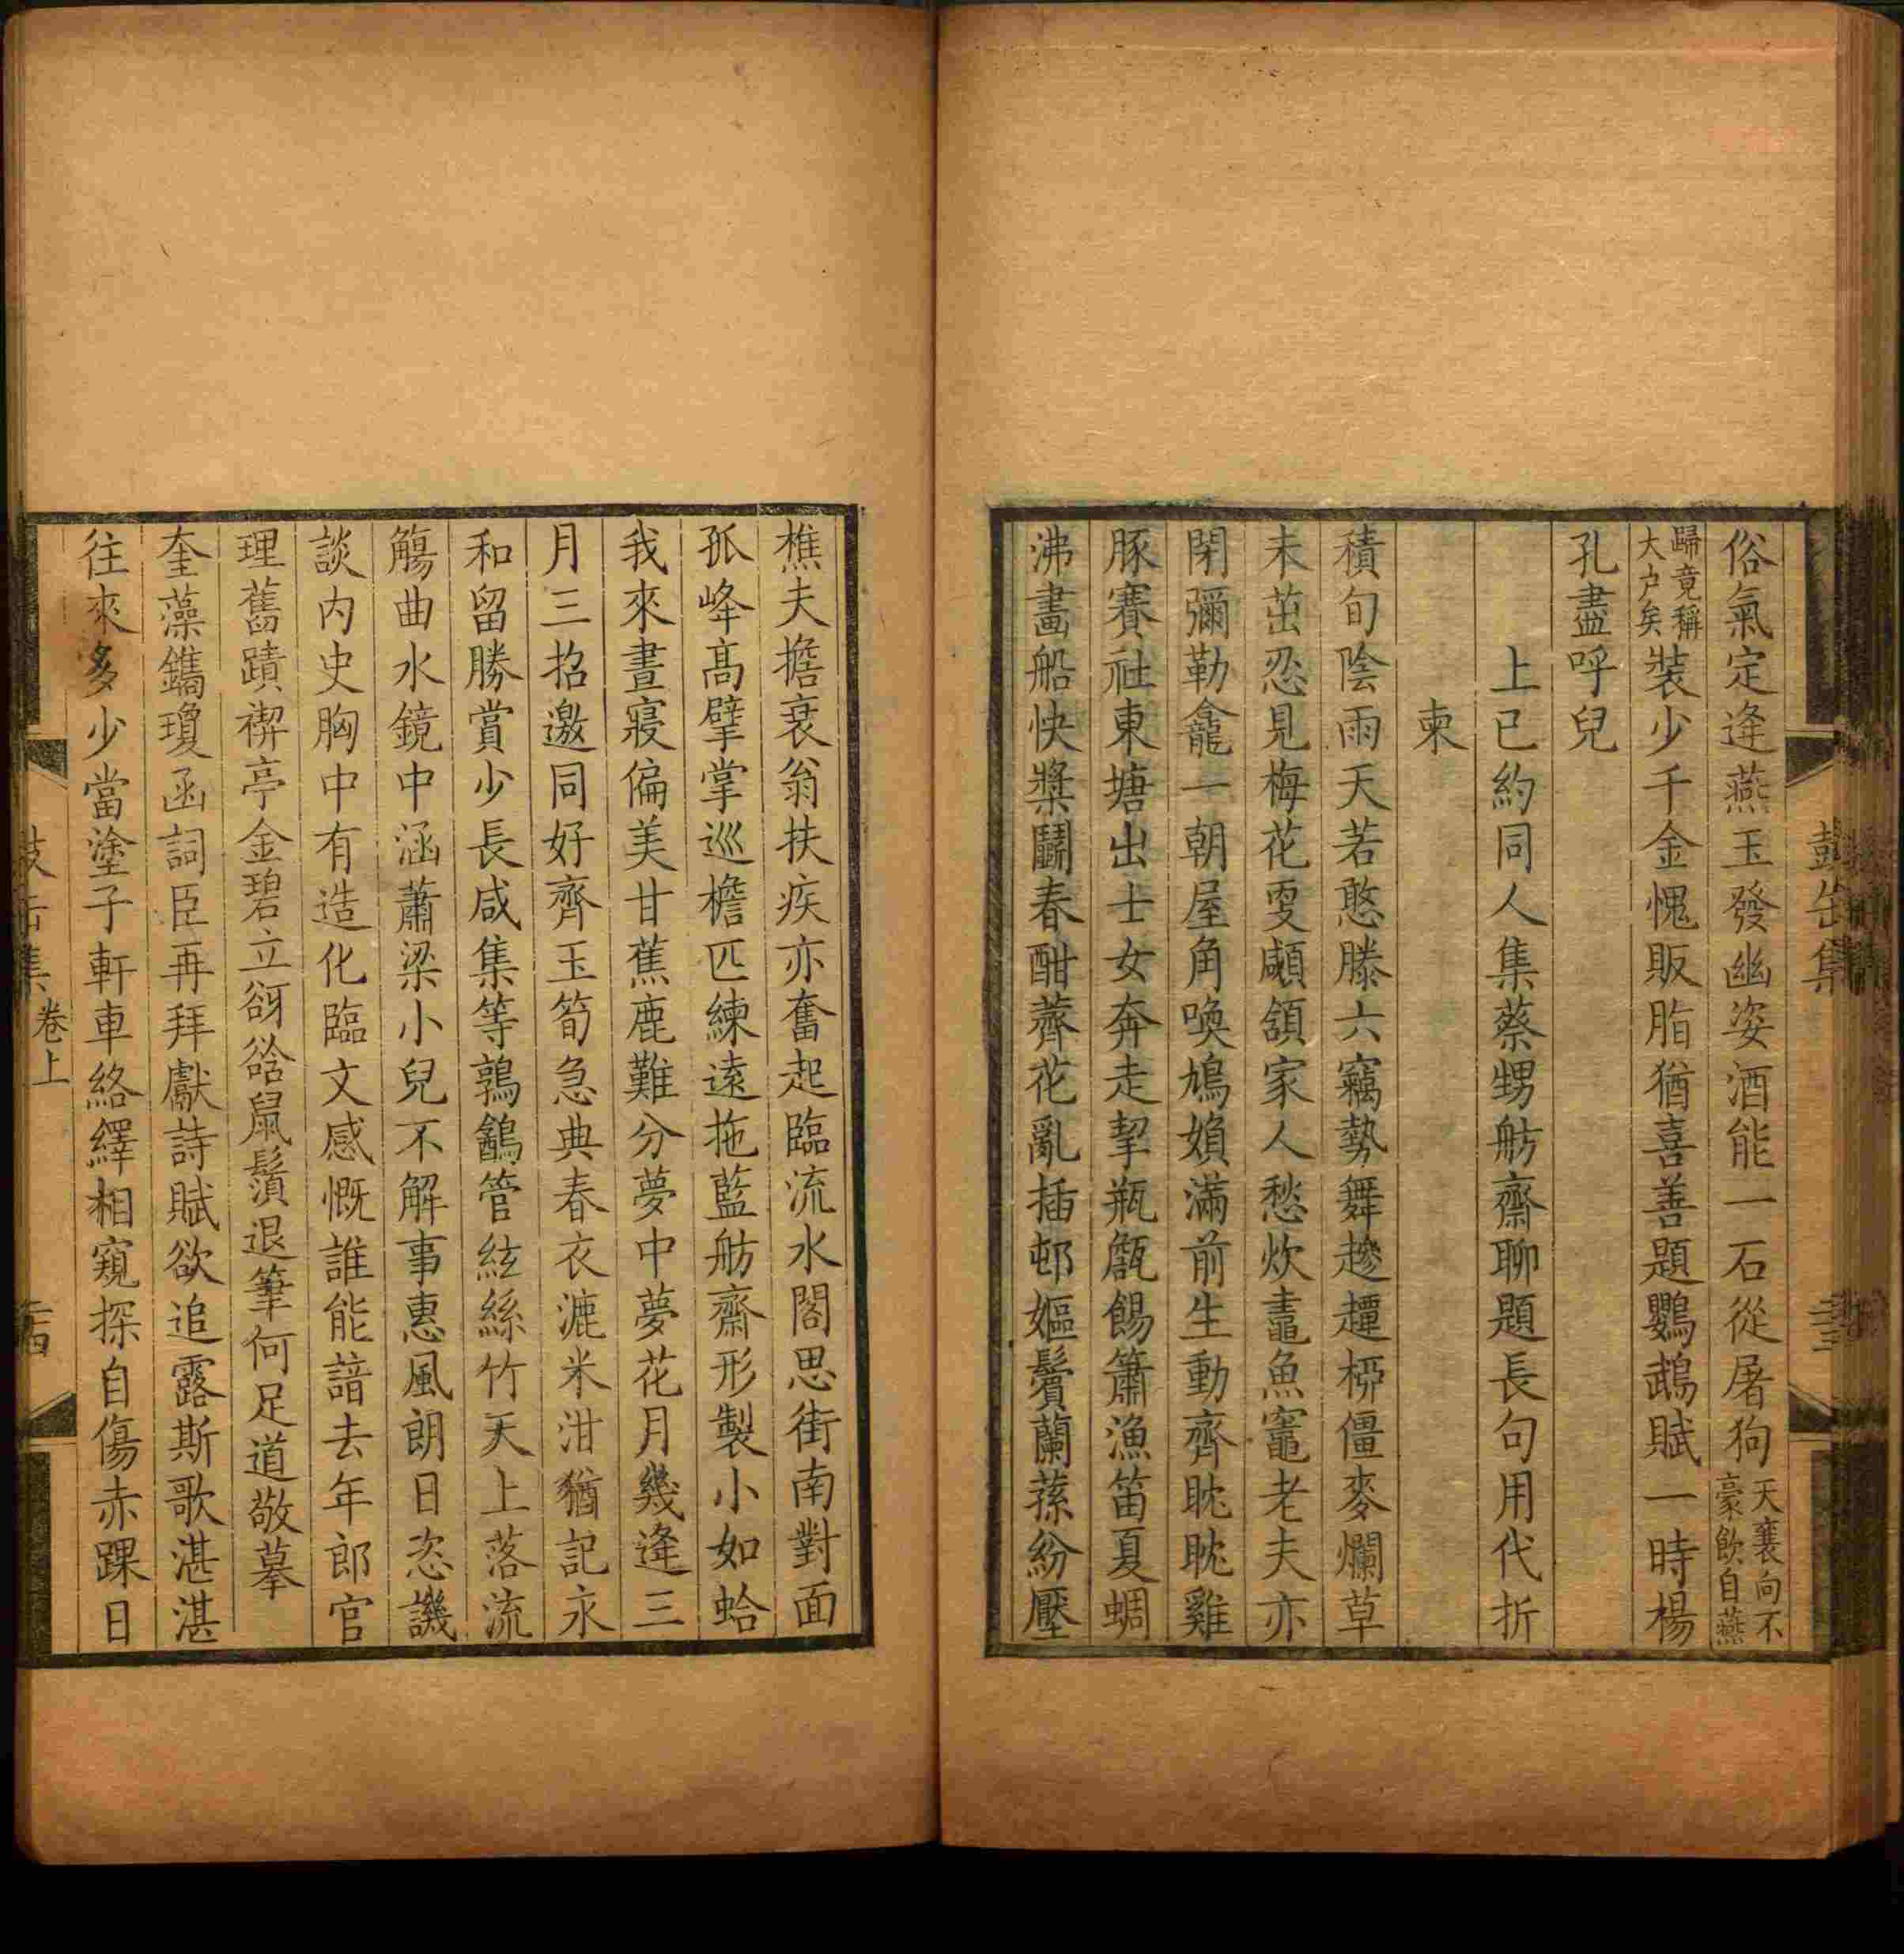 俗氣定逢燕玉發幽姿酒能一石從屠狗天襄向不豪飲自燕
歸竟稱大户矣裝少千金愧販脂猶喜善題鸚鵡賦一時楊
孔盡呼兒
上巳約同人集蔡甥舫齋聊題長句用代折
柬
積旬陰雨天若憨滕六竊勢舞趁趯桺僵麥爛草
未茁忍見梅花耎顑頷家人愁炊鼃魚竈老夫亦
閉彌勒龕一朝屋角喚鳩媍滿前生動齊眈眈雞
豚賽社東塘出士女奔走挈瓶甔餳簫漁笛夏蜩
沸畫船快槳鬭春酣薺花亂插邨嫗鬢蘭蓀紛壓
樵夫擔衰翁扶疾亦奮起臨流水閣思街南對面
孤峰高擘掌巡檐匹練遠拖藍舫齋形製小如蛤
我來晝寢偏美甘蕉鹿難分夢中夢花月幾逢三
月三招邀同好齊玉筍急典春衣漉米泔猶記永
和留勝賞少長咸集等鶉鷂管絃絲竹天上落流
觴曲水鏡中涵蕭梁小兒不解事惠風朗日恣譏
談内史胸中有造化臨文感慨誰能諳去年郎官
理舊蹟禊亭金碧立谺谽鼠鬚退筆何足道敬摹
奎藻鐫瓊函詞臣再拜獻詩賦欲追露斯歌湛湛
往來多少當塗子軒車絡繹相窺探自傷赤踝日
鼓缶集
卷上